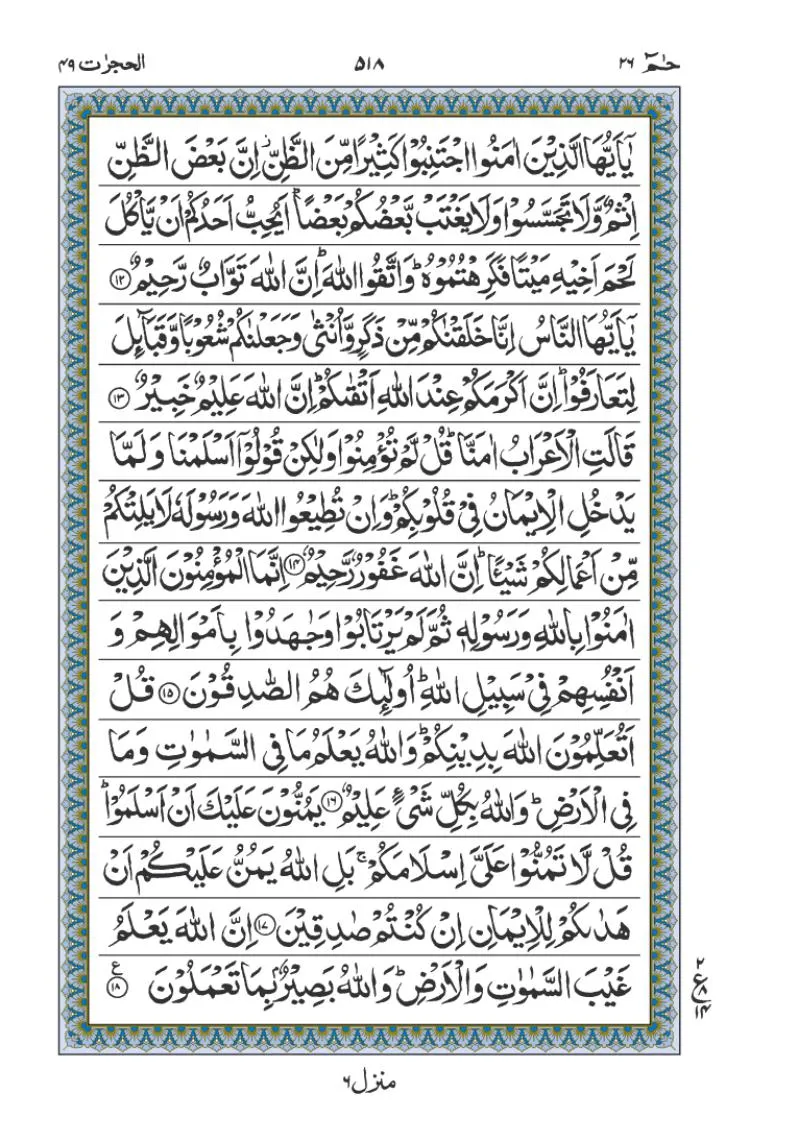 حٰمٓ ۲۶ ۵۱۸ الحجرٰت ۴۹
یٰۤاَیُّهَا الَّذِیْنَ اٰمَنُوا اجْتَنِبُوْا كَثِیْرًا مِّنَ الظَّنِّ٘ اِنَّ بَعْضَ الظَّنِّ
اِثْمٌ وَّلَا تَجَسَّسُوْا وَلَا یَغْتَبْ بَّعْضُكُمْ بَعْضًاؕ اَیُحِبُّ اَحَدُكُمْ اَنْ یَّاْكُلَ
لَحْمَ اَخِیْهِ مَیْتًا فَكَرِهْتُمُوْهُؕ وَاتَّقُوا اللّٰهَؕ اِنَّ اللّٰهَ تَوَّابٌ رَّحِیْمٌ ۝۱۲
یٰۤاَیُّهَا النَّاسُ اِنَّا خَلَقْنٰكُمْ مِّنْ ذَكَرٍ وَّاُنْثٰی وَجَعَلْنٰكُمْ شُعُوْبًا وَّقَبَآىِٕلَ
لِتَعَارَفُوْاؕ اِنَّ اَكْرَمَكُمْ عِنْدَ اللّٰهِ اَتْقٰىكُمْؕ اِنَّ اللّٰهَ عَلِیْمٌ خَبِیْرٌ ۝۱۳
قَالَتِ الْاَعْرَابُ اٰمَنَّاؕ قُلْ لَّمْ تُؤْمِنُوْا وَلٰكِنْ قُوْلُوْۤا اَسْلَمْنَا وَلَمَّا
یَدْخُلِ الْاِیْمَانُ فِیْ قُلُوْبِكُمْؕ وَاِنْ تُطِیْعُوا اللّٰهَ وَرَسُوْلَهٗ لَا یَلِتْكُمْ
مِّنْ اَعْمَالِكُمْ شَیْـًٔاؕ اِنَّ اللّٰهَ غَفُوْرٌ رَّحِیْمٌ ۝۱۴ اِنَّمَا الْمُؤْمِنُوْنَ الَّذِیْنَ
اٰمَنُوْا بِاللّٰهِ وَرَسُوْلِهٖ ثُمَّ لَمْ یَرْتَابُوْا وَجٰهَدُوْا بِاَمْوَالِهِمْ وَ
اَنْفُسِهِمْ فِیْ سَبِیْلِ اللّٰهِؕ اُولٰٓىِٕكَ هُمُ الصّٰدِقُوْنَ ۝۱۵ قُلْ
اَتُعَلِّمُوْنَ اللّٰهَ بِدِیْنِكُمْؕ وَاللّٰهُ یَعْلَمُ مَا فِی السَّمٰوٰتِ وَمَا
فِی الْاَرْضِؕ وَاللّٰهُ بِكُلِّ شَیْءٍ عَلِیْمٌ ۝۱۶ یَمُنُّوْنَ عَلَیْكَ اَنْ اَسْلَمُوْاؕ
قُلْ لَّا تَمُنُّوْا عَلَیَّ اِسْلَامَكُمْۚ بَلِ اللّٰهُ یَمُنُّ عَلَیْكُمْ اَنْ
هَدٰىكُمْ لِلْاِیْمَانِ اِنْ كُنْتُمْ صٰدِقِیْنَ ۝۱۷ اِنَّ اللّٰهَ یَعْلَمُ
غَیْبَ السَّمٰوٰتِ وَالْاَرْضِؕ وَاللّٰهُ بَصِیْرٌۢ بِمَا تَعْمَلُوْنَ ۝۱۸ ع
۲
ع ۸
۱۴
منزل ۶